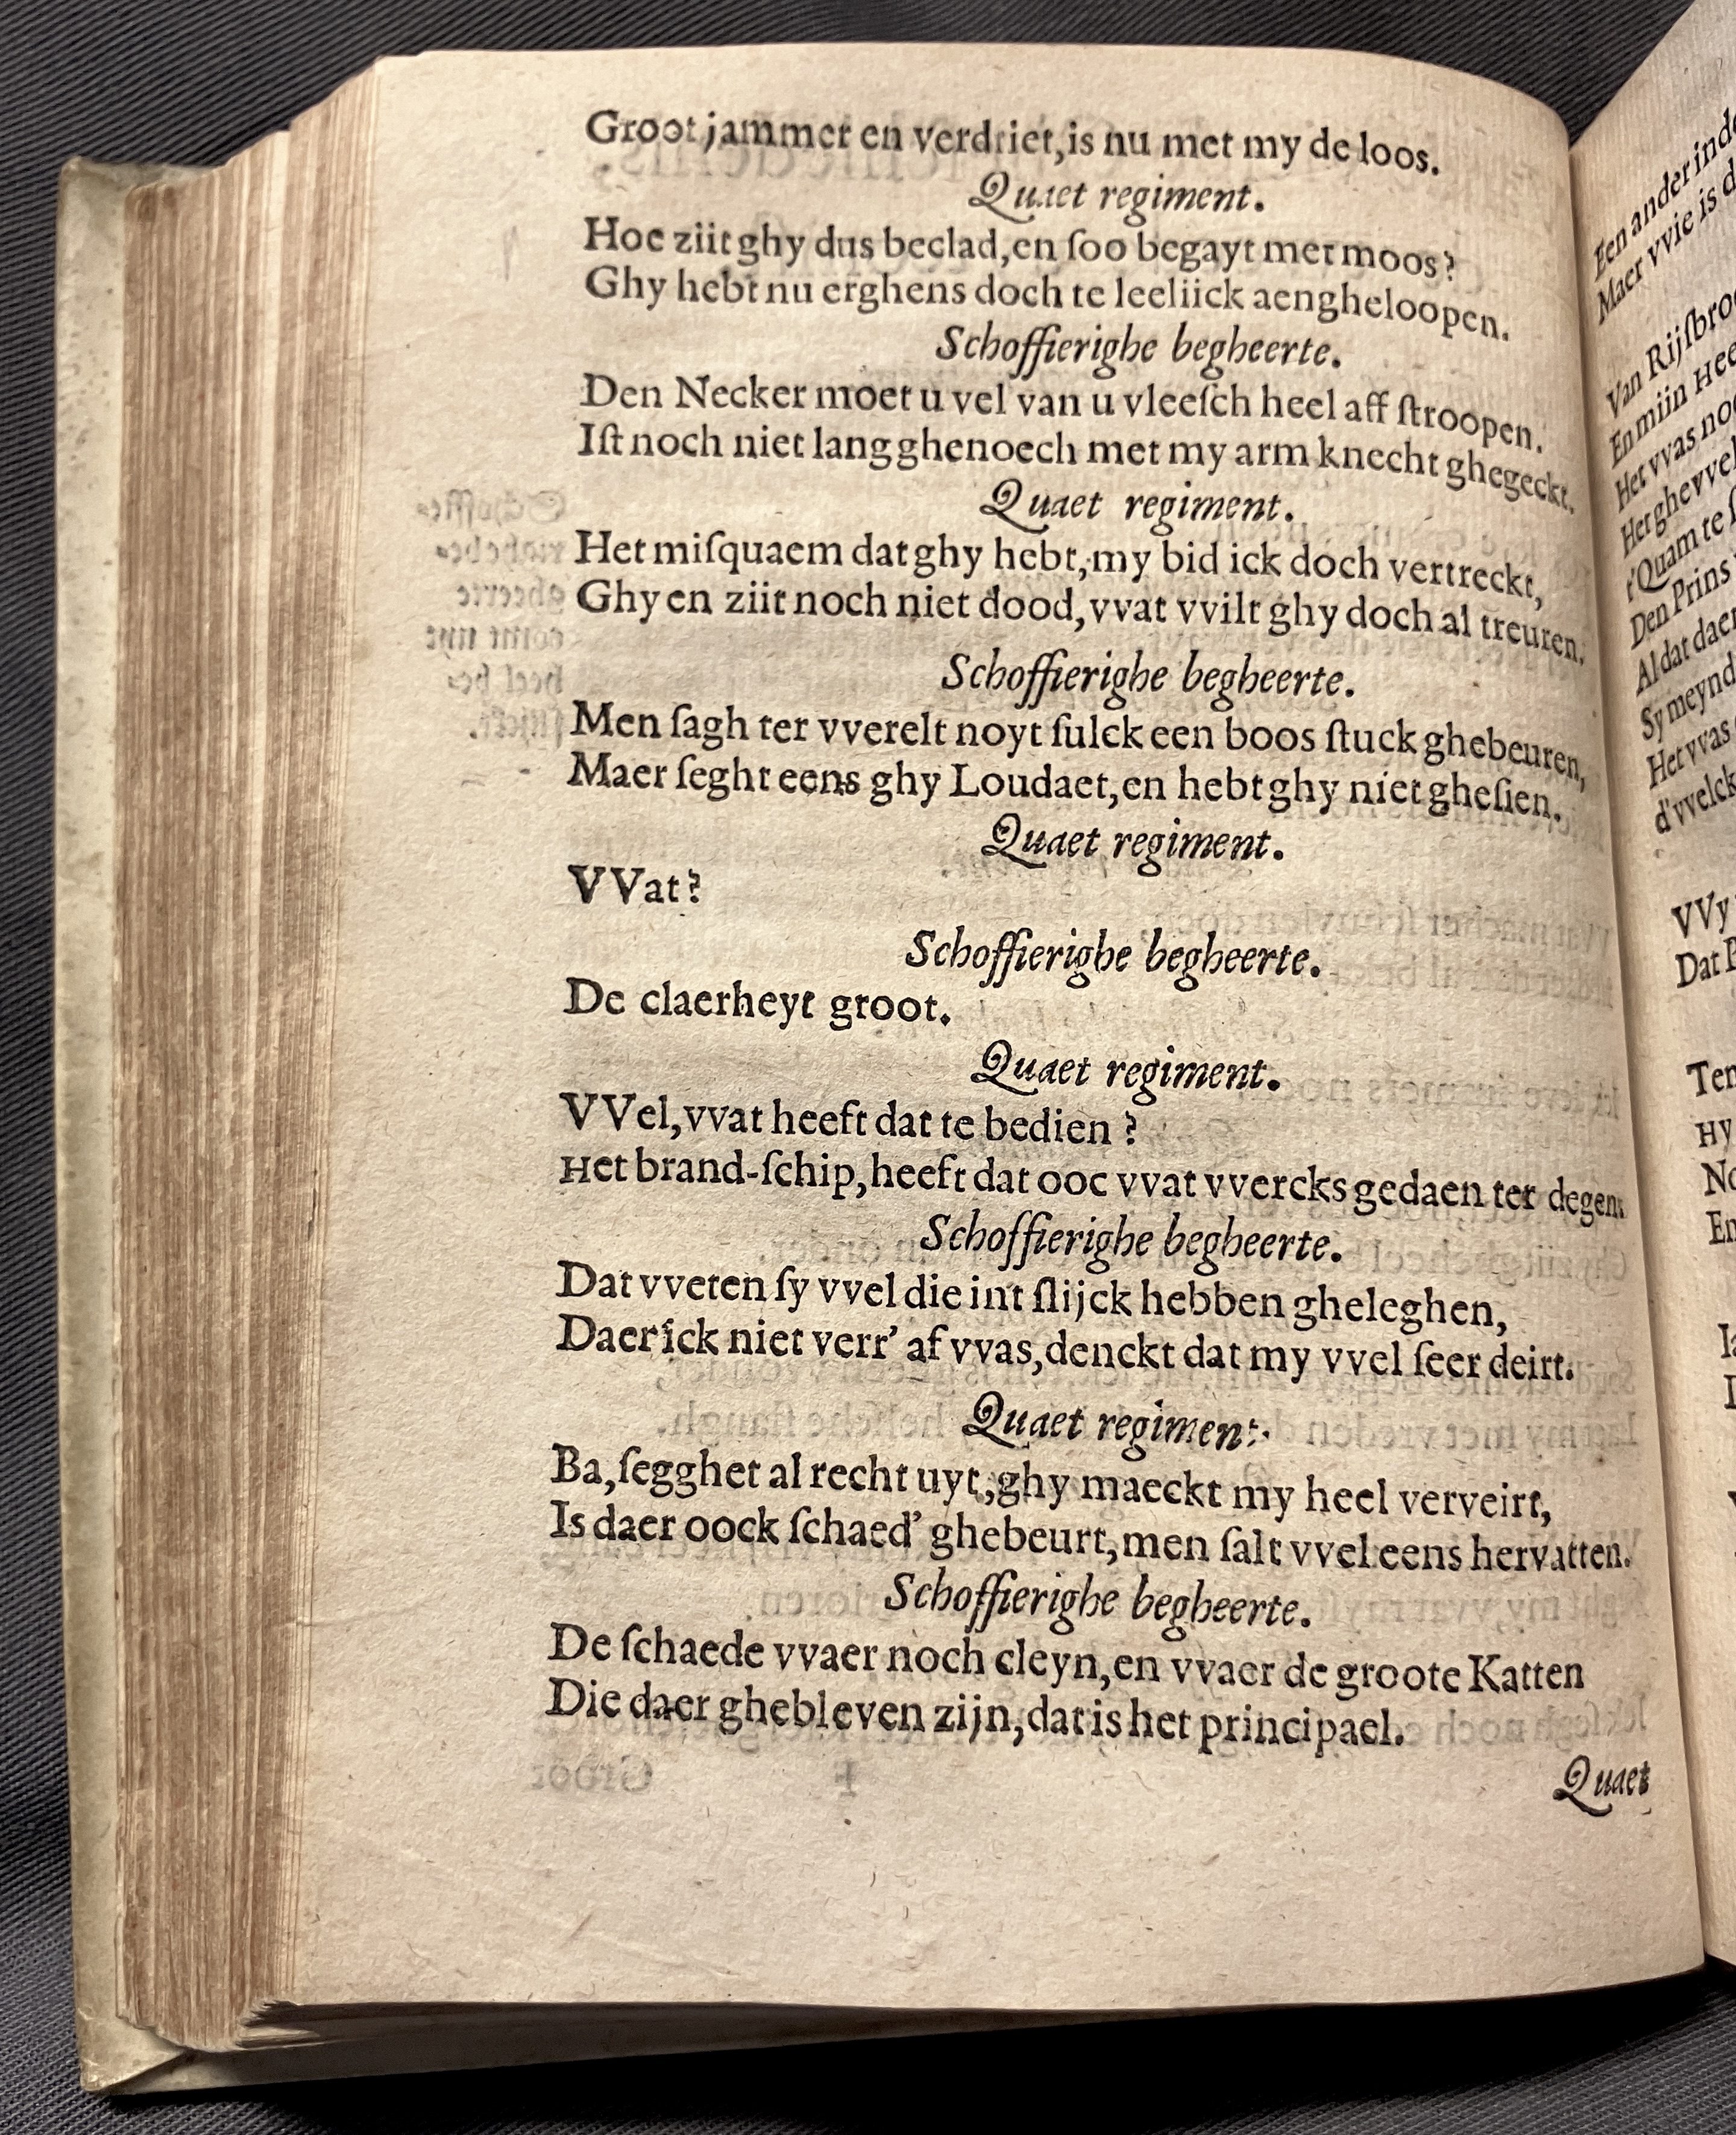 Groot jammer en verdriet,is nu met my de loos.
Quaet regiment.
Hoe ziit ghy dus beclad,en ſoo begayt met moos?
Ghy hebt nu erghens doch te leeliick aengheloopen.
Schoffierighe begheerte.
Den Necker moet u vel van u vleeſch heel aff ſtroopen.
Iſt noch niet lang ghenoech met my arm knecht ghegeckt.
Quaet regiment.
Het miſquaem dat ghy hebt,my bid ick doch vertreckt,
Ghy en ziit noch niet dood,vvat vvilt ghy doch al treuren.
Schoffierighe begheerte.
Men ſagh ter vverelt noyt ſulck een boos ſtuck ghebeuren,
Maer ſeght eens ghy Loudaet,en hebt ghy niet gheſien.
Quaet regiment.
VVat?
Schoffierighe begheerte.
De claerheyt groot.
Quaet regiment.
VVel,vvat heeft dat te bedien?
Het brand-ſchip,heeft dat ooc vvat vvercks gedaen ter degen.
Schoffierighe begheerte.
Dat vveten ſy vvel die int ſlijck hebben gheleghen,
Daer ick niet verr' af vvas,denckt dat my vvel ſeer deirt.
Quaet regiment.
Ba,ſegghet al recht uyt,ghy maeckt my heel verveirt,
Is daer oock ſchaed' ghebeurt,men ſalt vvel eens hervatten.
Schoffierighe begheerte.
De ſchaede vvaer noch cleyn,en vvaer de groote Katten
Die daer ghebleven zijn,dat is het principael.
Quaet
Een ander
Maer vvie is
Van
En miin
Het vvas
t'Quam te
Den Prins
Al dat daer
Sy
Het vvas
d'vvelck
VVy
Dat
Hy